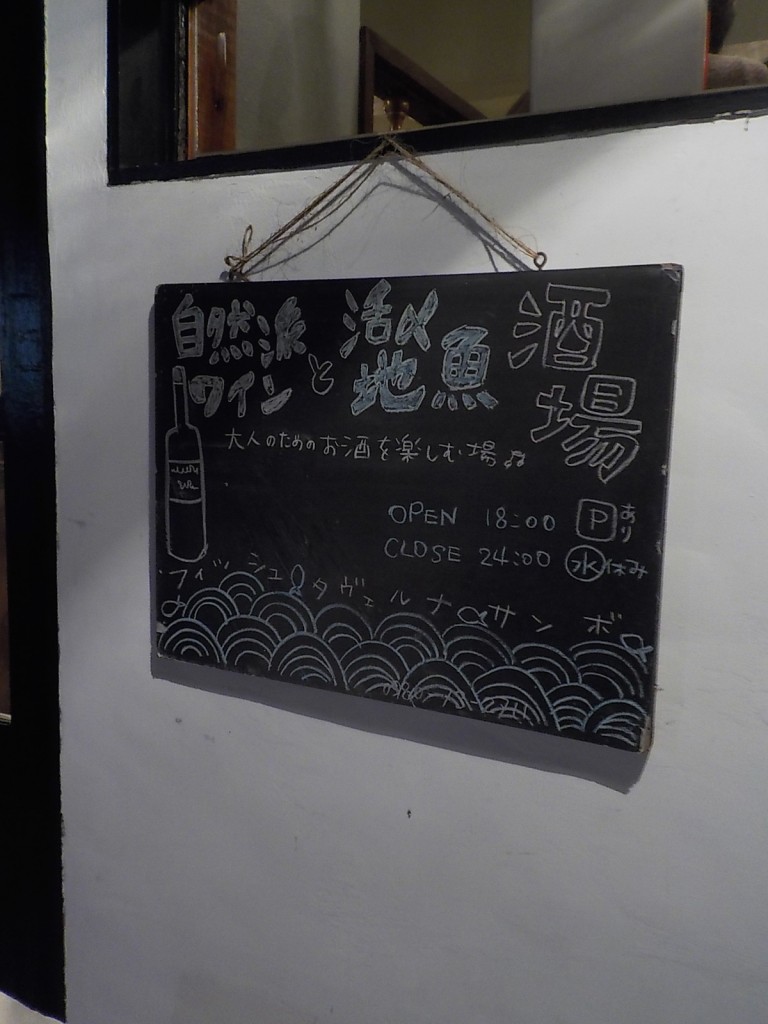 自然派
ワイン
と
活〆
地魚
酒場
大人のためのお酒を楽しむ場所
OPEN 18:00 Pあり
CLOSE 24:00 水休み
フィッシュタヴェルナサンボ